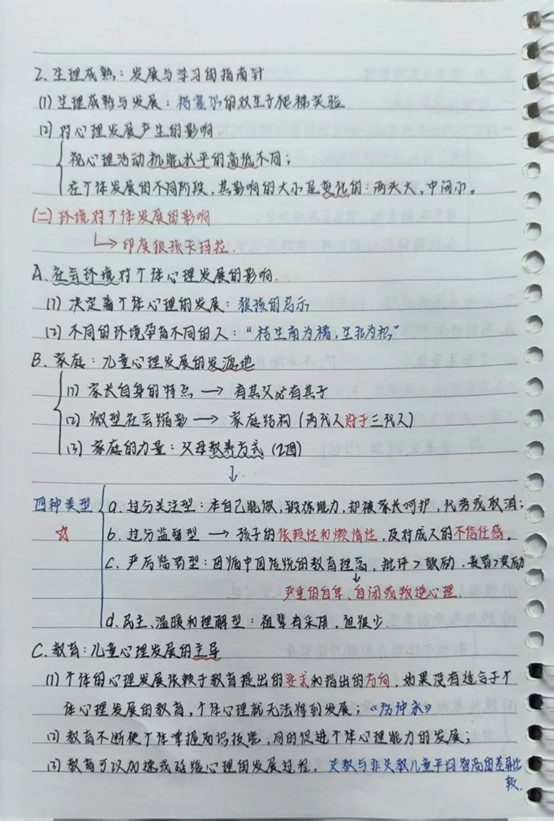 2. 生理成熟：发展与学习的指南针
(1) 生理成熟与发展：格塞尔的双生子爬梯实验
(2) 对心理发展产生的影响
视心理活动机能水平的高低不同；
在个体发展的不同阶段，其影响的大小是变化的：两头大，中间小。
(二) 环境对个体发展的影响
↳ 印度狼孩卡玛拉.
A. 社会环境对个体心理发展的影响.
(1) 决定着个体心理的发展：狼孩的启示
(2) 不同的环境孕育不同的人：“桔生南为橘，生北为枳”
B. 家庭：儿童心理发展的发源地
(1) 家长自身的特点 → 有其父必有其子
(2) 微型社会缩影 → 家庭结构 (两代人好于三代人)
(3) 家庭的力量：父母教养方式 (2面)
↓
四种类型 ☆
a. 过分关注型：本自己能做，锻炼能力，却被家长呵护，代劳或取消；
b. 过分监督型 → 孩子的依赖性和懒惰性，及对成人的不信任感。
c. 严厉惩罚型：因循中国传统的教育理念，批评>鼓励，责罚>奖励
↓
严重的自卑、自闭或叛逆心理.
d. 民主、温暖和理解型：祖辈有采用，但很少.
C. 教育：儿童心理发展的主导
(1) 个体的心理发展依赖于教育提出的要求和指出的方向，如果没有适合于个
体心理发展的教育，个体心理就无法得到发展；《伤仲永》
(2) 教育不断使个体掌握知识技能，同时促进个体心理能力的发展；
(3) 教育可以加速或延缓心理的发展过程。失教与非失教儿童平均智商的差异比
较.